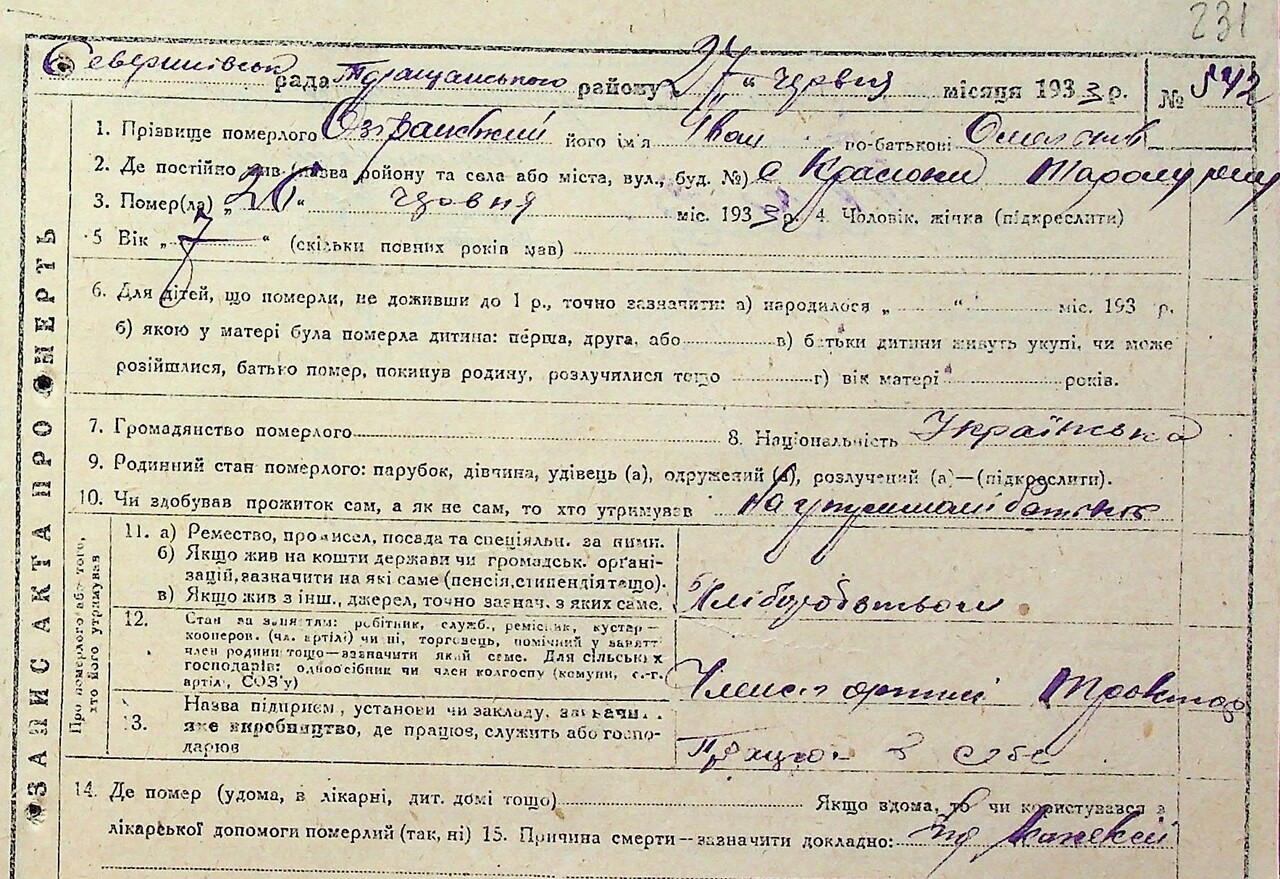 231
рада Таращанського району 27 " Червня місяця 1933 р. № 542
1. Прізвище померлого його ім'я Іван по-батькові
2. Де постійно жив (назва району та села або міста, вул., буд. №)
3. Помер(ла) „ 26 " Червня міс. 1933 р. 4. Чоловік, жінка (підкреслити)
5 Вік „ 7 " (скільки повних років мав)
6. Для дітей, що померли, не доживши до 1 р., точно зазначити: а) народилося „ " міс. 193 р.
б) якою у матері була померла дитина: перша, друга, або в) батьки дитини живуть укупі, чи може
розійшлися, батько помер, покинув родину, розлучилися тощо г) вік матері років.
7. Громадянство померлого 8. Національність Українська
9. Родинний стан померлого: парубок, дівчина, удівець (а), одружений (а), розлучений (а)—(підкреслити).
10. Чи здобував прожиток сам, а як не сам, то хто утримував На утриманні батьків
ЗАПИС АКТА ПРО СМЕРТЬ
Про померлого або того, хто його утримував
11. а) Ремество, промисел, посада та спеціяльн. за ними.
б) Якщо жив на кошти держави чи громадськ. орґані-
зацій, зазначити на які саме (пенсія, стипендія тощо).
в) Якщо жив з інш., джерел, точно зазнач. з яких саме.
12. Стан за заняттям: робітник, служб., ремісник, кустар—
кооперов. (чл. артілі) чи ні, торговець, помічний у занятті
член родини тощо—зазначити який саме. Для сільських
господарів: одноосібник чи член колгоспу (комуни, с.-г.
артілі, СОЗ'у)
артілі
13. Назва підприєм., установи чи закладу,
яке виробництво, де працює, служить або госпо-
дарює
14. Де помер (удома, в лікарні, дит. домі тощо) Якщо вдома, то чи користувався з
лікарської допомоги померлий (так, ні) 15. Причина смерти—зазначити докладно: